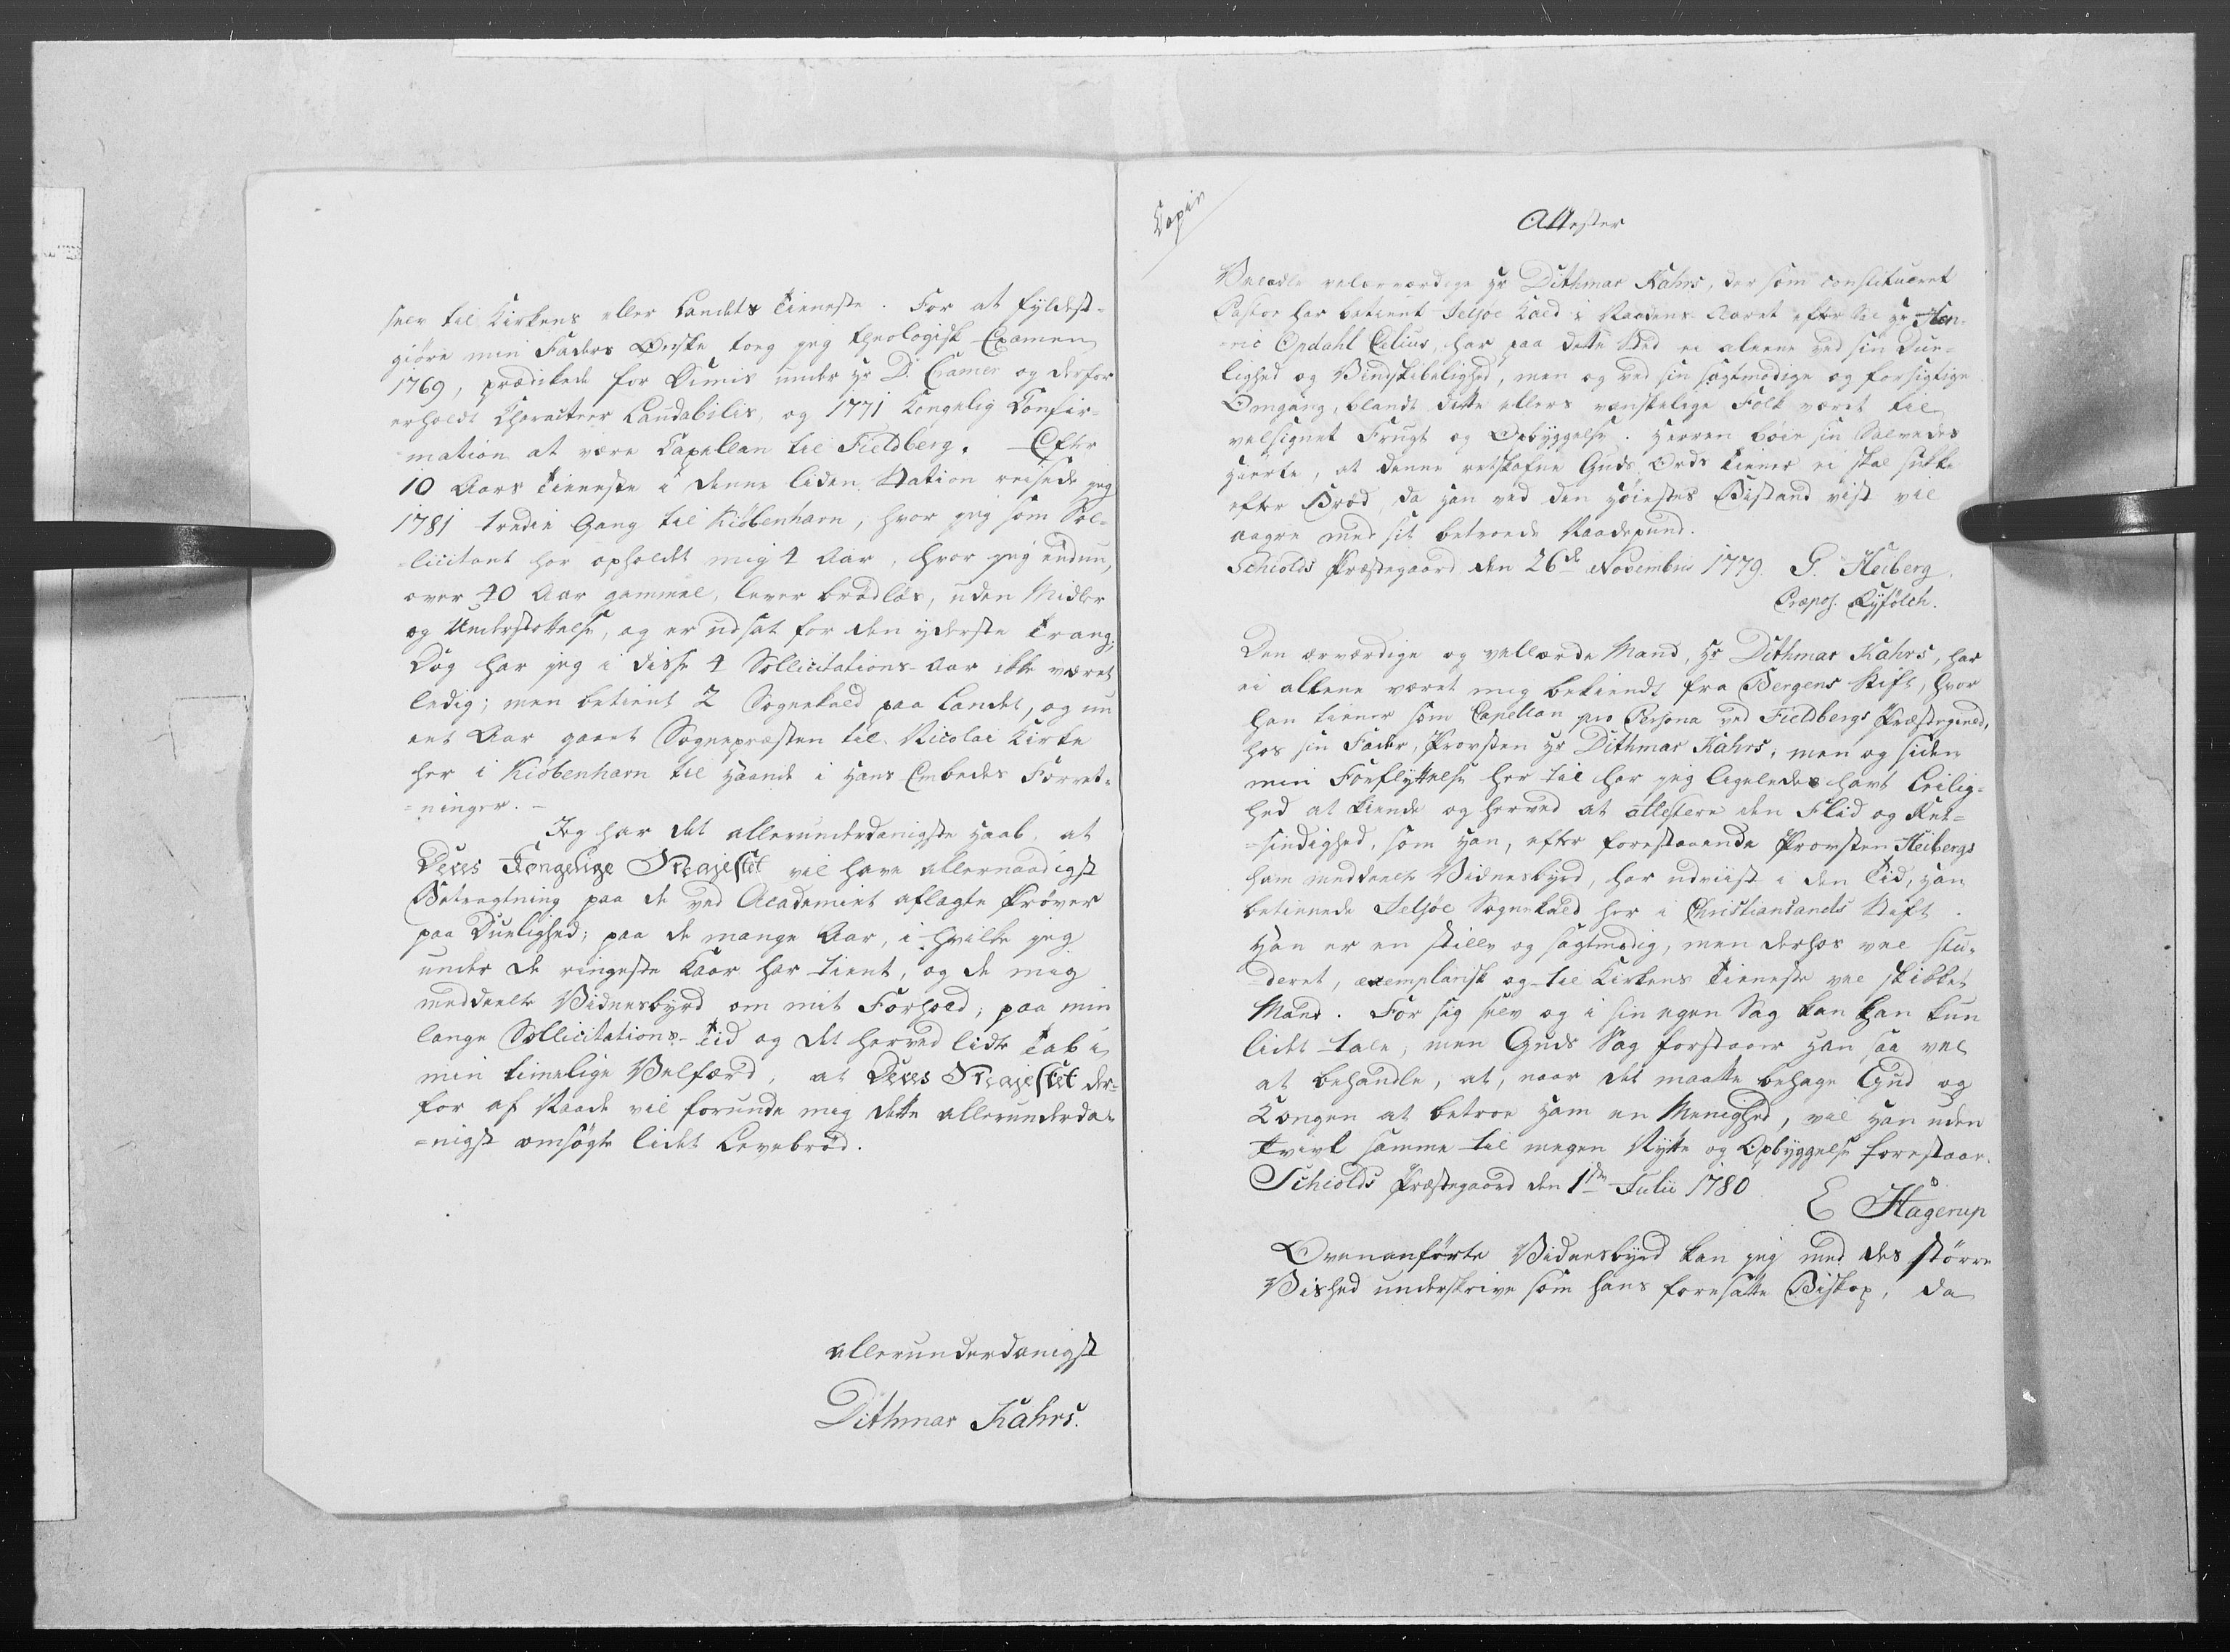 selv til Kirkens eller Landets Tieneste. For at fyldest-
giöre min Faders Ønske toeg jeg theologisk Examen
1769, prædikede for Dimis under Hr D. Cramer og derfor
erholdt Characteer Laudabilis, og 1771 Kongelig Confir-
mation at være Capellan til Fieldberg. Efter
10 Aars Tieneste i denne liden Station reisede jeg
1781 tredie Gang til Kiöbenhavn, hvor jeg som Sol-
licitant har opholdt mig 4 Aar, hvor jeg endnu,
over 40 Aar gammel, lever brödlös, uden Midler
og Understöttelse, og er udsat for den yderste Trang;
Dog har jeg i disse 4 Sollicitations-Aar ikke været
ledig; men betient 2 Sognekald paa Landet, og nu
eet Aar gaaet Sognepræsten til Nicolai Kirke
her i Kiöbenhavn til Haande i Hans Embedes Forret-
=ninger. -
Jeg har det allerunderdanigste Haab, at
Deres Kongelige Majestet vil have allernaadigst
Betragtning paa de ved Academiet aflagte Pröver
paa Duelighed; paa de mange Aar, i hvilke jeg
under de ringeste Kaar har tient, og de mig
meddeelte Vidnesbyrd om mit Forhold; paa min
lange Sollicitations-Tid og det herved lidte Tab i
min timelige Velfærd, at Deres Majestet der-
for af Naade vil forunde mig dette allerunderda-
=nigst ansögte lidet Levebröd.
allerunderdanigst
Dithmar Kahrs.
Copie
Attester
Velædle velærværdige Hr Dithmar Kahrs, der som constitueret
Pastor har betient Jelsöe Kald i Naadens Aaret efter Sal. Hr Hen-
ric Opdahl Cilius, har paa dette Sted ei aleene ved sin Due-
lighed og Vindskibelighed, men og ved sin sagtmodige og forsigtige
Omgang, blandt dette ellers vanskelige Folk været til
velsignet Frugt og Opbyggelse. Herren böie sin Salvedes
Hierte, at denne retskafne Guds Ords Tiener ei skal sukke
efter Bröd, da Han ved den Höiestes Bistand vist vil
aagre med sit betroede Naadepund.
Schiolds Præstegaard den 26de Novembris 1779. G. Heiberg.
Præpos. Ryfölch.
Den ærværdige og vellærde Mand, Hr Dithmar Kahrs, har
ei alleene været mig bekiendt fra Bergens Stift, hvor
han tiener som Capellan pro Persona ved Fieldbergs Præstegield,
hos sin Fader, Provsten Hr Dithmar Kahrs, men og siden
min Forflyttelse her til har jeg ligeledes havt Leilig-
hed at kiende og herved at attestere den Flid og Ret-
=sindighed, som Han, efter forestaaende Provsten Heibergs
ham meddeelte Vidnesbyrd, har udviist i den Tid, Han
betienede Jelsöe Sognekald her i Christiansands Stift.
Han er en stille og sagtmodig, men derhos vel stu-
deret, exemplarisk og til Kirkens Tieneste vel skikket
Mand. For sig selv og i sin egen Sag kan han kun
lidet tale, men Guds Sag forstaaer Han saa vel
at behandle, at, naar det maatte behage Gud og
Kongen at betroe Ham en Menighed, vil Han uden
Tvivl samme til megen Nytte og Opbyggelse forestaae.
Schiolds Præstegaard den 1ste Julii 1780
E Hagerup
Ovenanförte Vidnesbyrd kan jeg med des större
Vished underskrive som hans foresatte Biskop, da